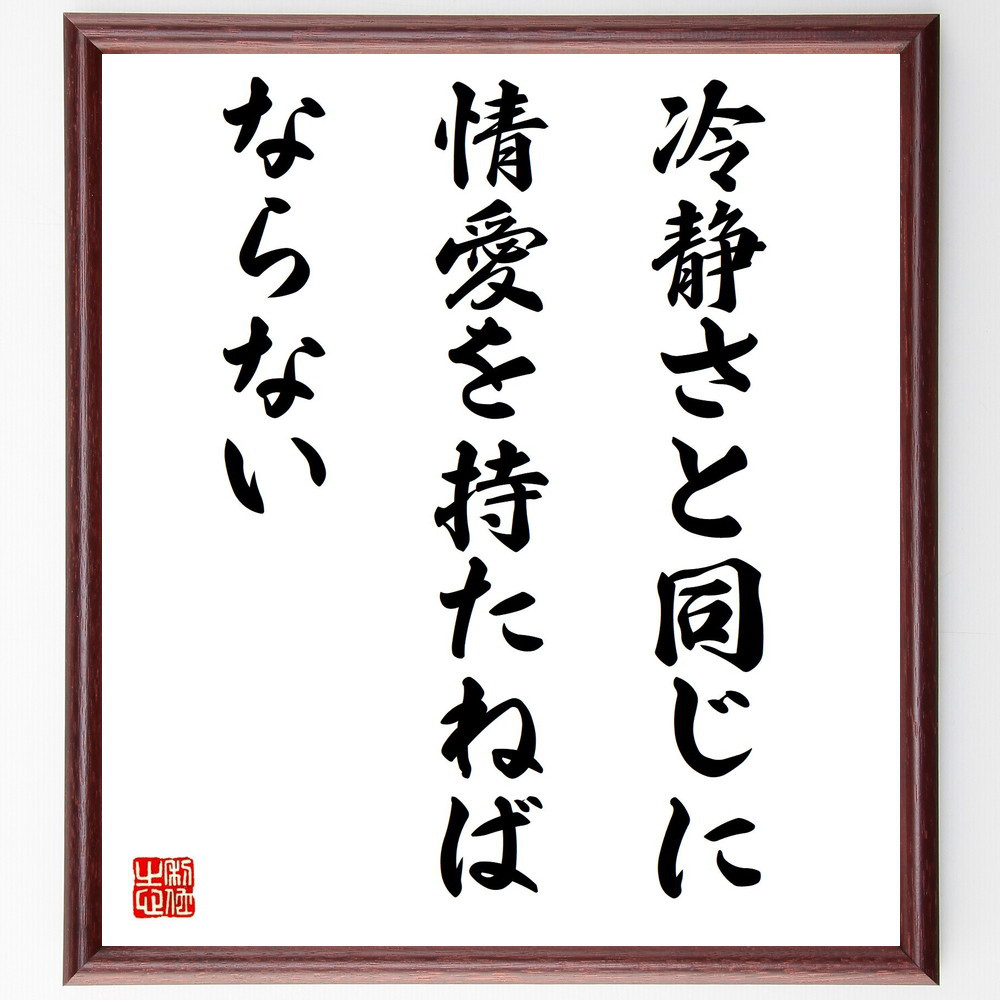 冷静さと同じに
情愛を持たねば
ならない